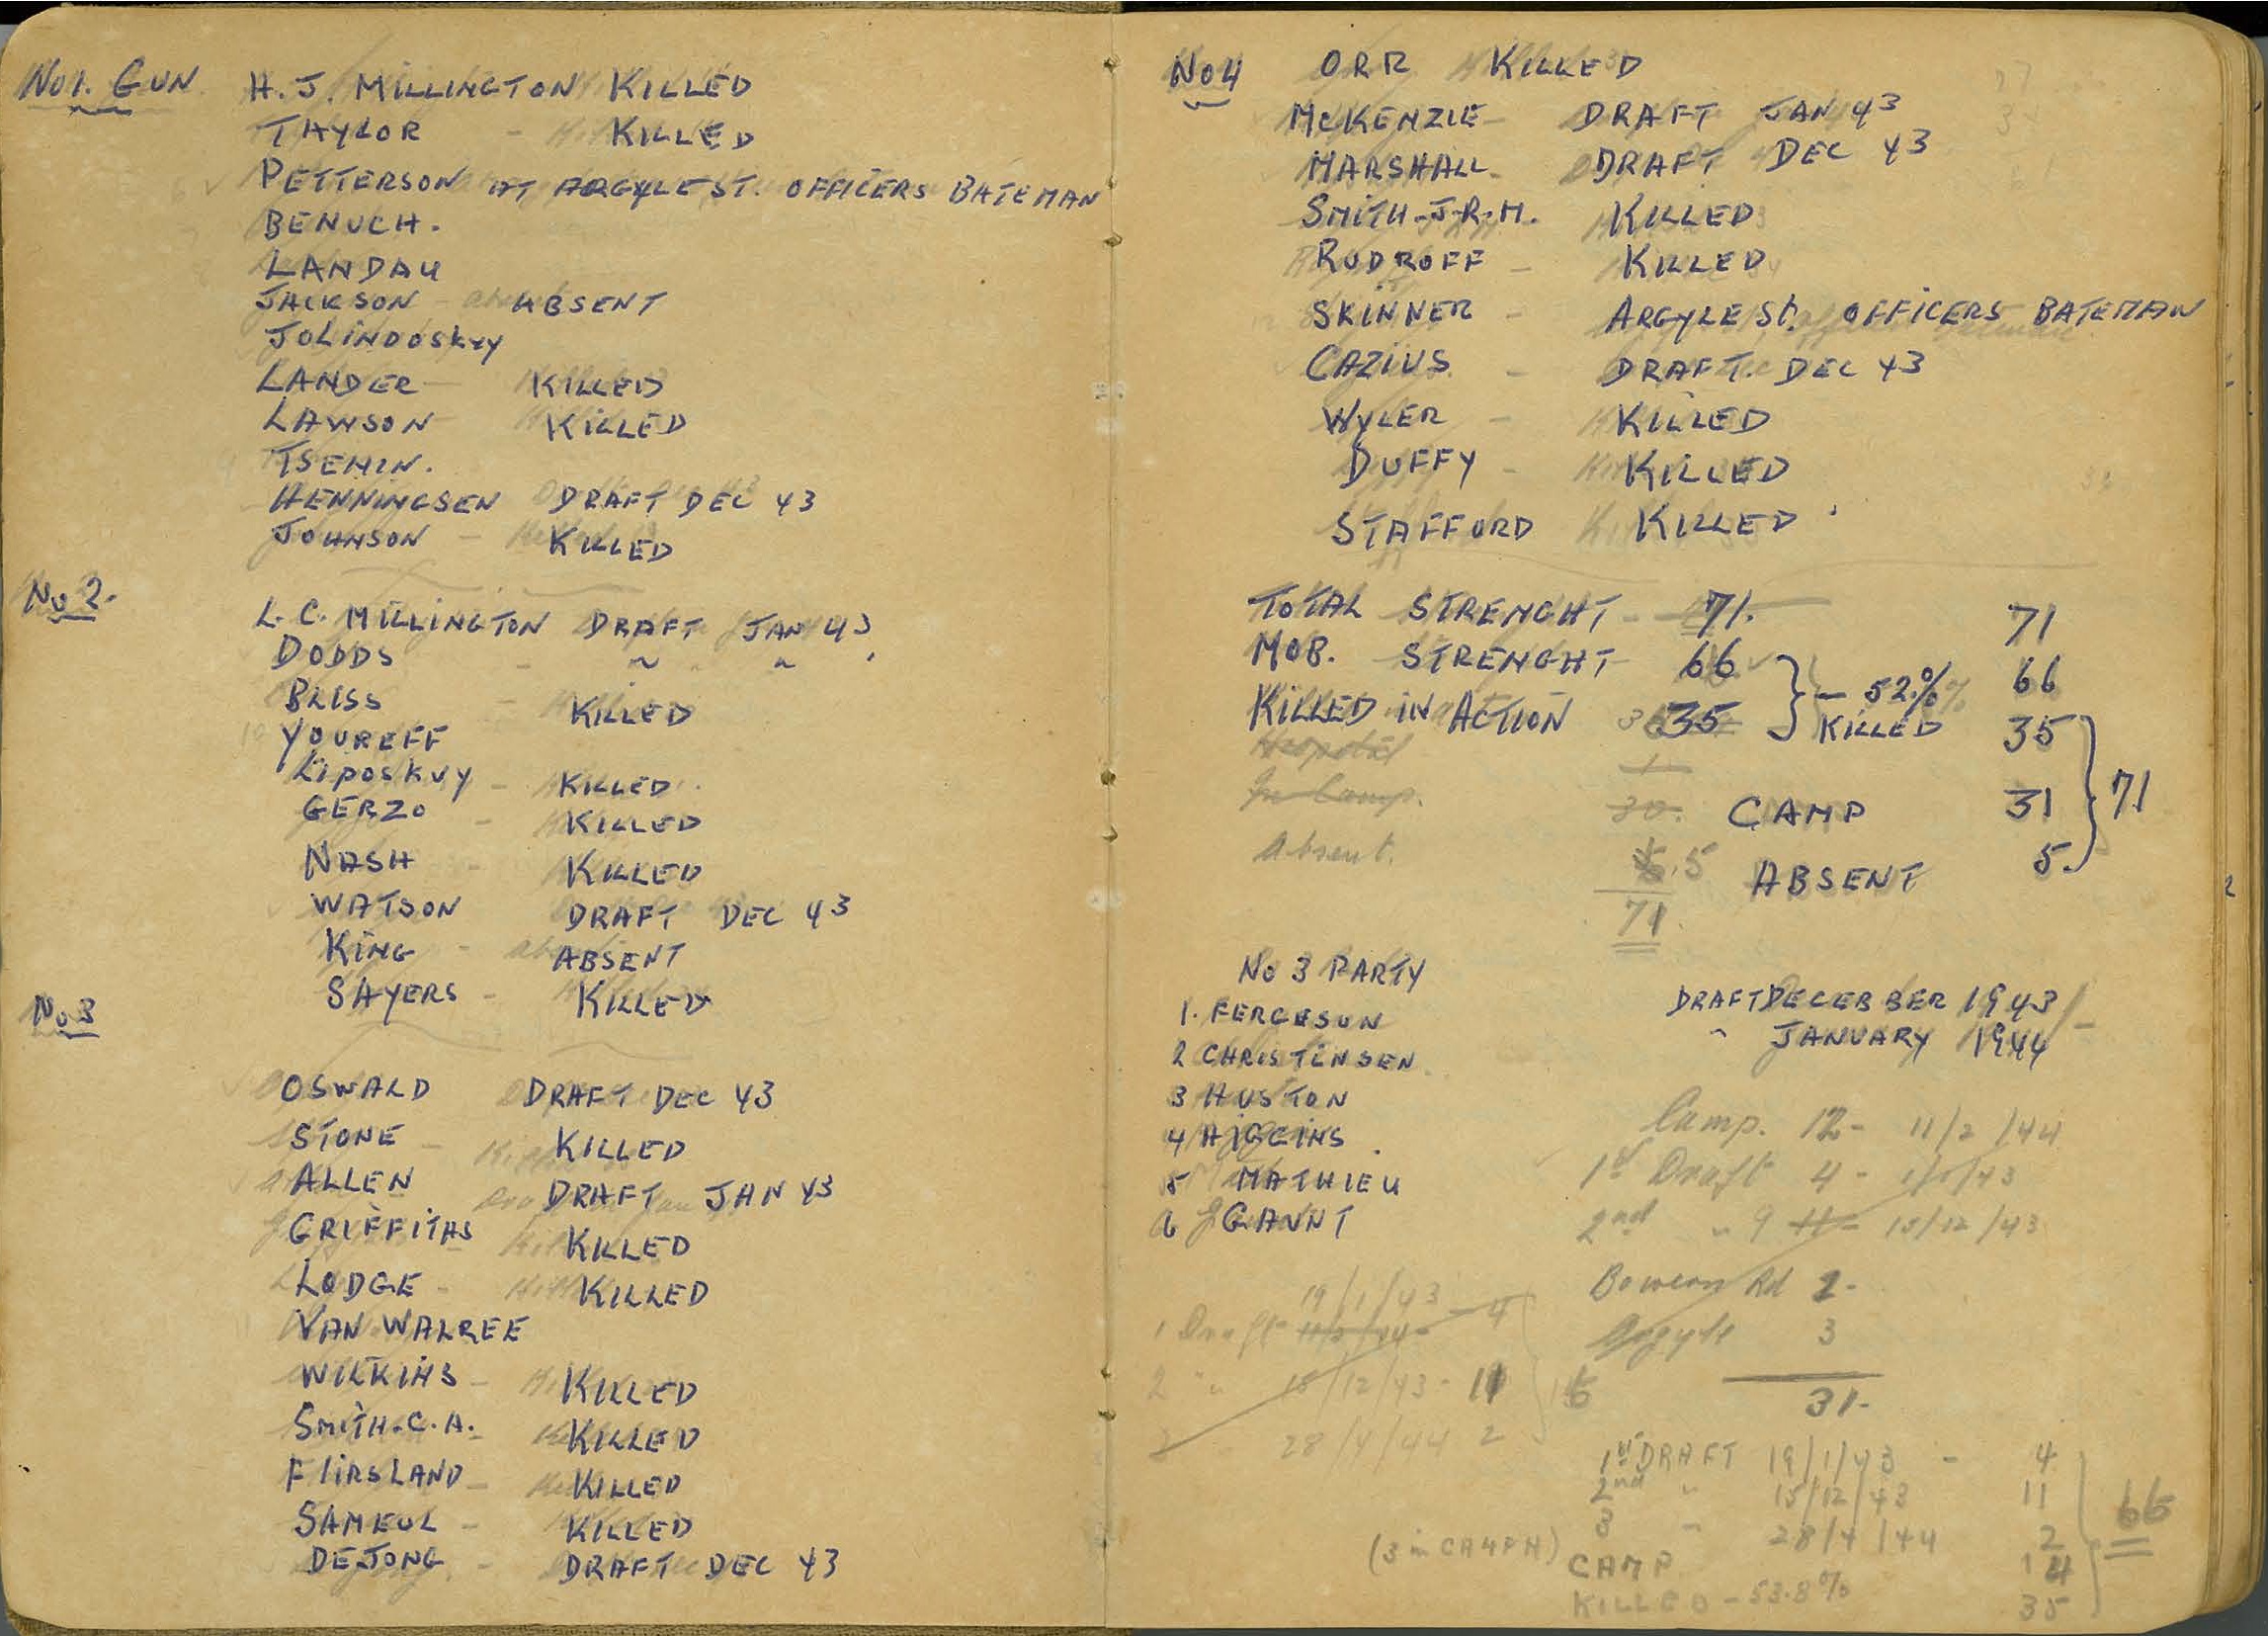 No1. GUN H. J. MILLINGTON KILLED
TAYLOR - KILLED
PETTERSON AT ARGYLE ST. OFFICERS BATEMAN
BENUCH.
LANDAU
JACKSON - ABSENT
JOLINDOSKVY
LANDER - KILLED
LAWSON KILLED
TSEMIN.
HENNINGSEN DRAFT DEC 43
JOHNSON - KILLED
No 2.
L. C. MILLINGTON DRAFT JAN 43
DODDS - " "
BLISS - KILLED
YOUREFF
LIPOSKVY - KILLED
GERZO - KILLED
NASH - KILLED
WATSON DRAFT DEC 43
KING - ABSENT
SAYERS - KILLED
No 3
OSWALD DRAFT DEC 43
STONE - KILLED
ALLEN DRAFT JAN 43
GRIFFITHS KILLED
LODGE - KILLED
VAN WALREE
WILKINS - KILLED
SMITH. C. A. KILLED
FLIRSLAND - KILLED
SAMEUL - KILLED
DEJONG - DRAFT DEC 43
No 4 ORR KILLED
McKENZIE - DRAFT JAN 43
MARSHALL - DRAFT DEC 43
SMITH - J. R. M. KILLED
RUDROFF - KILLED
SKINNER - ARGYLE St. OFFICERS BATEMAN
CAZIUS - DRAFT. DEC 43
WYLER - KILLED
DUFFY - KILLED
STAFFORD KILLED
TOTAL STRENGHT - 71. 71
MOB. STRENGHT 66 } - 52% 66
KILLED IN ACTION 35 KILLED 35
Hospital 1
In Camp. 30. CAMP 31 } 71
Absent. 5 ABSENT 5.
71
No 3 PARTY
1. FERGUSON
2 CHRISTINSEN
3 HUSTON
4 HIGGINS
5 MATHIEU
6 GANNT
DRAFT DECEBBER 1943
" JANUARY 1944
Camp. 12 - 11/2/44
1st Draft 4 - 1/43
2nd " 9 11 - 15/12/43
Bowen Rd 2 -
Argyle 3
31 -
1 Draft 19/1/43 - 4
2 " 15/12/43 - 11
3 28/4/44 2
1st DRAFT 19/1/43 - 4
2nd " 15/12/43 11
3 " 28/4/44 2 } 66
(3 in CAMP H) CAMP 14
KILLED - 53.8% 35